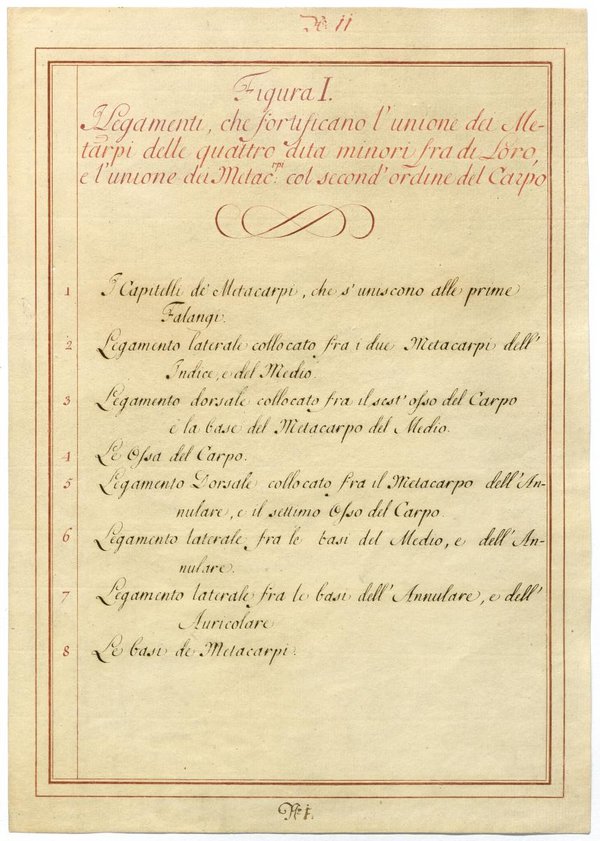 Nº 11
Figura I.
I Legamenti, che fortificano l'unione dei Me-
tarpi delle quattro dita minori fra di Loro,
e l'unione dei Metac.rpi col second' ordine del Carpo
1 I Capitelli de' Metacarpi, che s'uniscono alle prime
Falangi.
2 Legamento laterale collocato fra i due Metacarpi dell'
Indice, e del Medio.
3 Legamento dorsale collocato fra il sest' osso del Carpo
e la base del Metacarpo del Medio.
4 Le Ossa del Carpo.
5 Legamento Dorsale collocato fra il Metacarpo dell' An-
nulare, e il settimo Osso del Carpo.
6 Legamento laterale fra le basi del Medio, e dell' An-
nulare.
7 Legamento laterale fra le basi dell' Annulare, e dell'
Auricolare
8 Le basi de Metacarpi.
Nº 1.